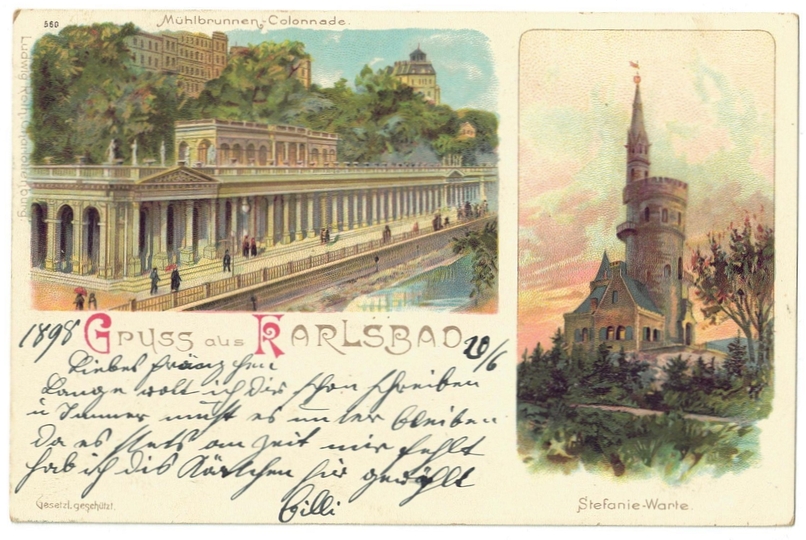 560
Mühlbrunnen-Colonnade.
Gruss aus Karlsbad
1898
20/6
Liebes Fränzchen
Lange wolt ich dir schon schreiben
u Immer must es unter bleiben
da es stets am Zeit mir fehlt
hab ich dis Kärtchen für gewählt
Cilli
Gesetzl. geschützt.
Stefanie-Warte.